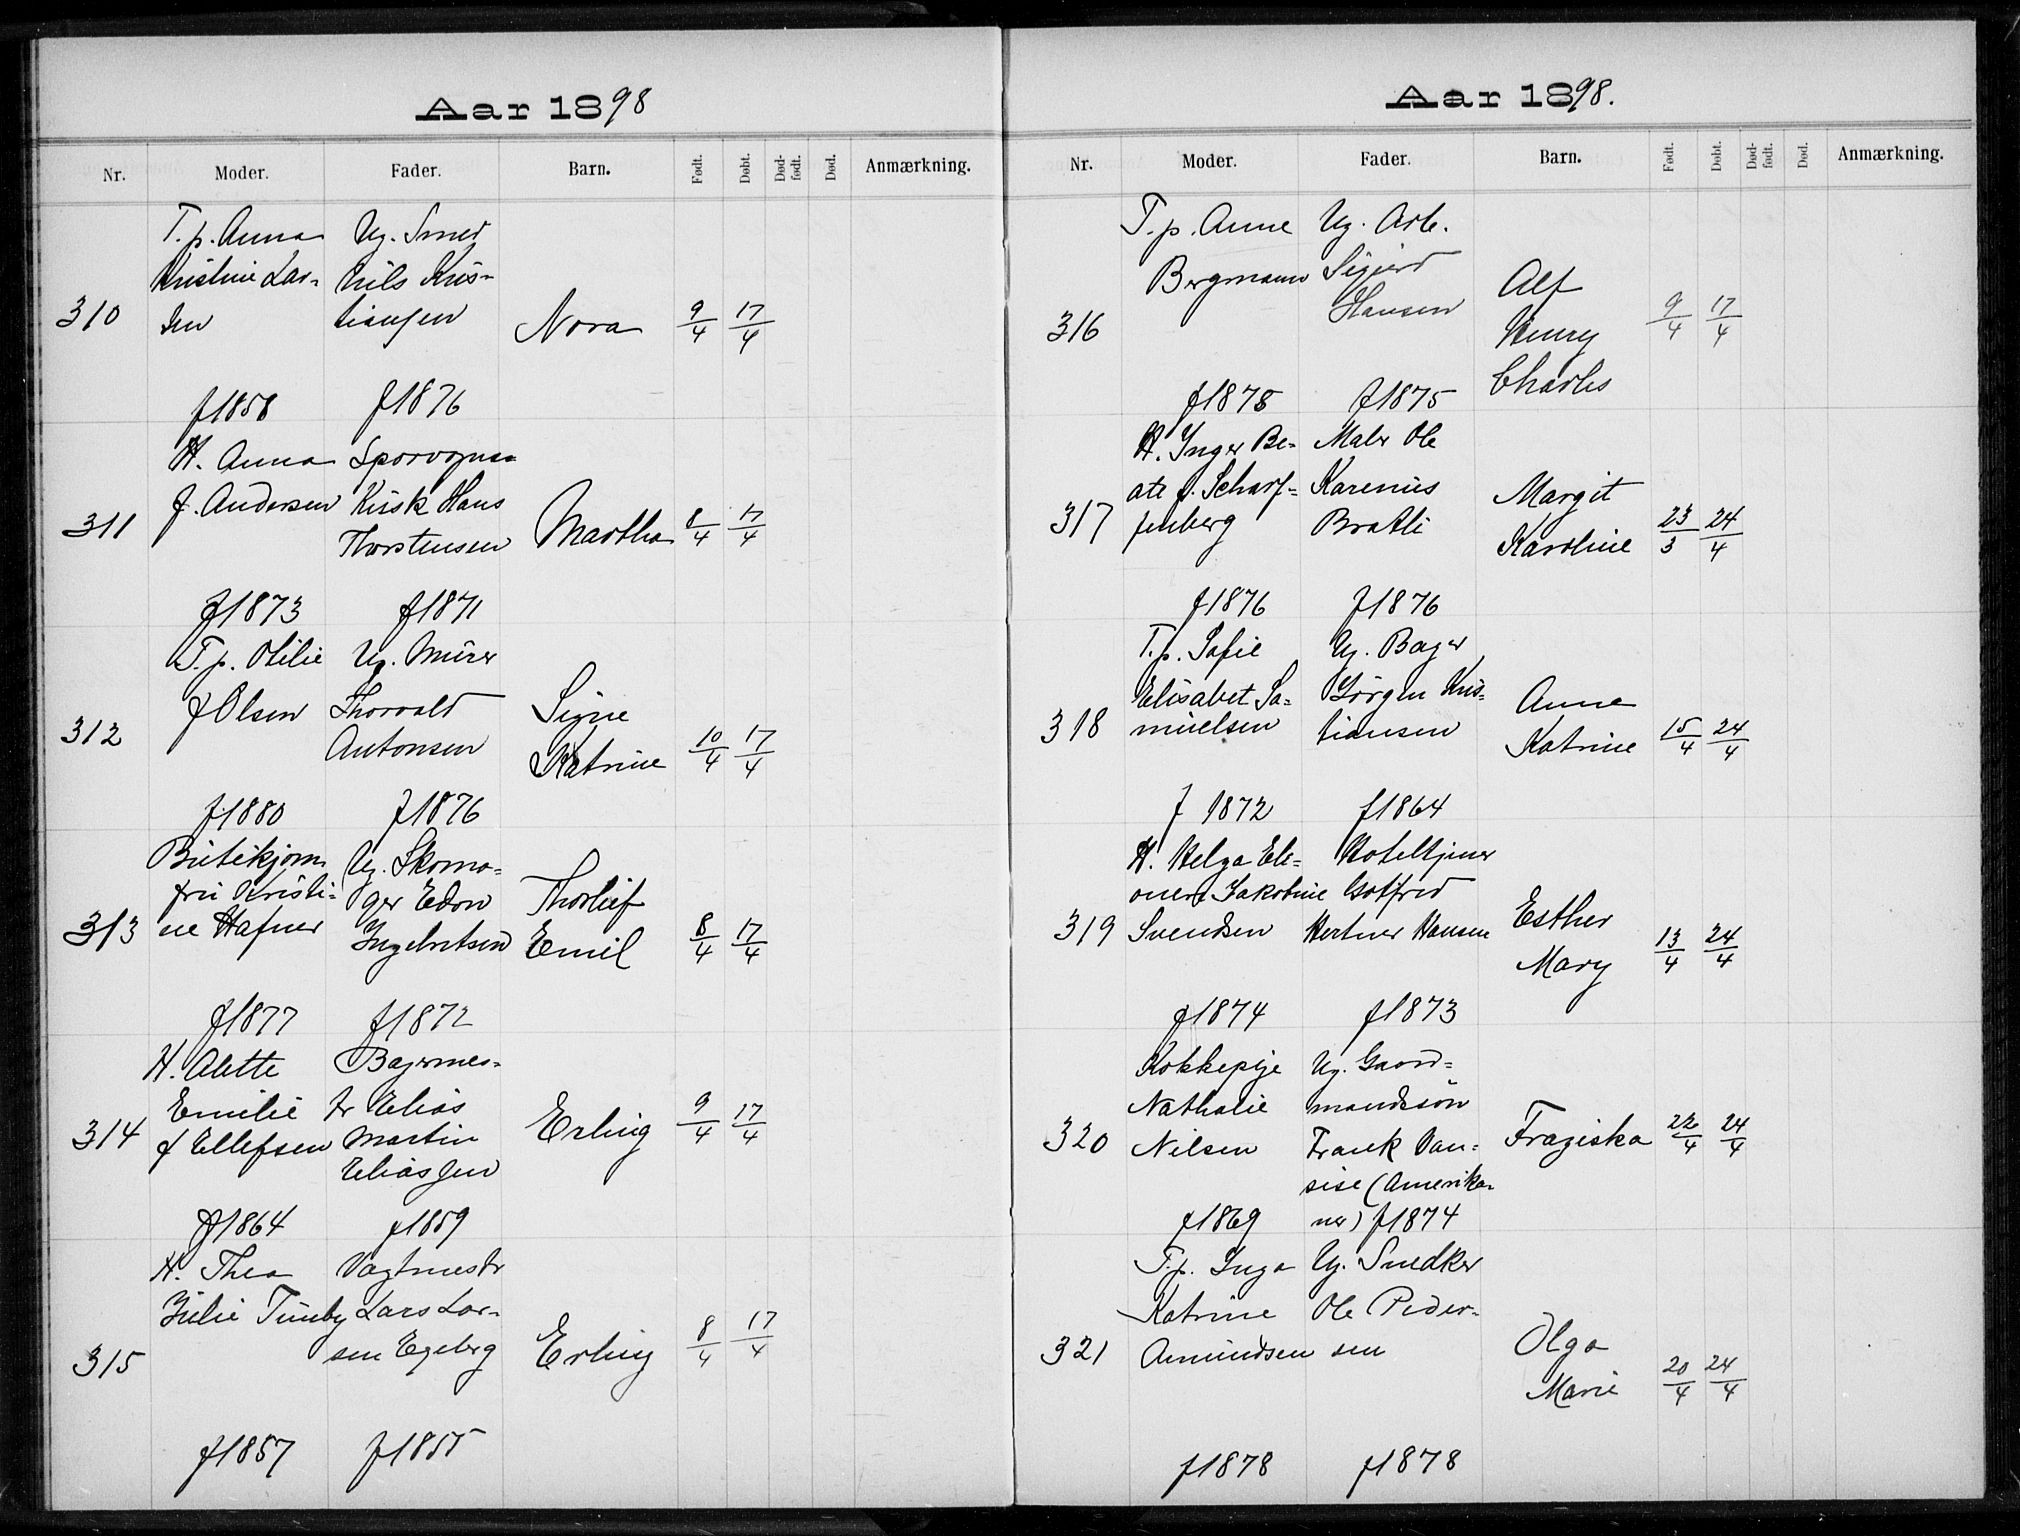 Aar 1898
Nr. Moder. Fader. Barn. Født. Døbt. Død-født. Død. Anmærkning.
310
T.p. Anna
Kristine Lar-
sen
f 1858
Ug. Smed
Nils Kris-
tiansen
f 1876
Nora
9/4 17/4
311
H. Anna
f. Andersen
f 1873
Sporvogns=
kusk Hans
Thorstensen
f 1871
Martha
8/4 17/4
312
T.p. Otilie
f Olsen
f 1880
Ug. Murer
Thorvald
Antonsen
f 1876
Signe
Katrine
10/4 17/4
313
Butikjom
fru Kristi-
ne Hafner
f 1877
Ug. Skoma-
ger Edvn
Ingebretsen
f 1872
Thorleif
Emil
8/4 17/4
314
H. Alette
Emilie
f Ellefsen
f 1864
Bagermes-
tr Elias
Martin
Eliassen
f 1859
Erling
9/4 17/4
315
H. Thea
Julie Tumby
f 1857
Vagtmestr
Lars Lar-
sen Egeberg
f 1855
Erling
8/4 17/4
Aar 1898.
Nr. Moder. Fader. Barn. Født. Døbt. Død-født. Død. Anmærkning.
316
T.p. Anne
Bergmann
f 1878
Ug. Arb.
Sigurd
Hansen
f 1875
Alf
Henry
Charles
9/4 17/4
317
H. Inger Be-
ate f. Scharf=
fenberg
f 1876
Maler Ole
Karenius
Bratli
f 1876
Margit
Karoline
23/3 24/4
318
T.p. Sofie
Elisabet Sa-
muelsen
f 1872
Ug. Bager
Jørgen Kris-
tiansen
f 1864
Anne
Katrine
15/4 24/4
319
H. Helga Ele-
onore Jakobine
Svendsen
f 1874
Hoteltjener
Gotfred
Hertner Hansen
f 1873
Esther
Mary
13/4 24/4
320
Kokkepige
Nathalie
Nilsen
f 1869
Ug. Gaard=
mandssøn
Frank Dan-
sise (Amerika-
ner) f 1874
Fraziska
22/4 24/4
321
T.p. Inga
Katrine
Amundsen
f 1878
Ug. Snedker
Ole Peder-
sen
f 1878
Olga
Marie
20/4 24/4